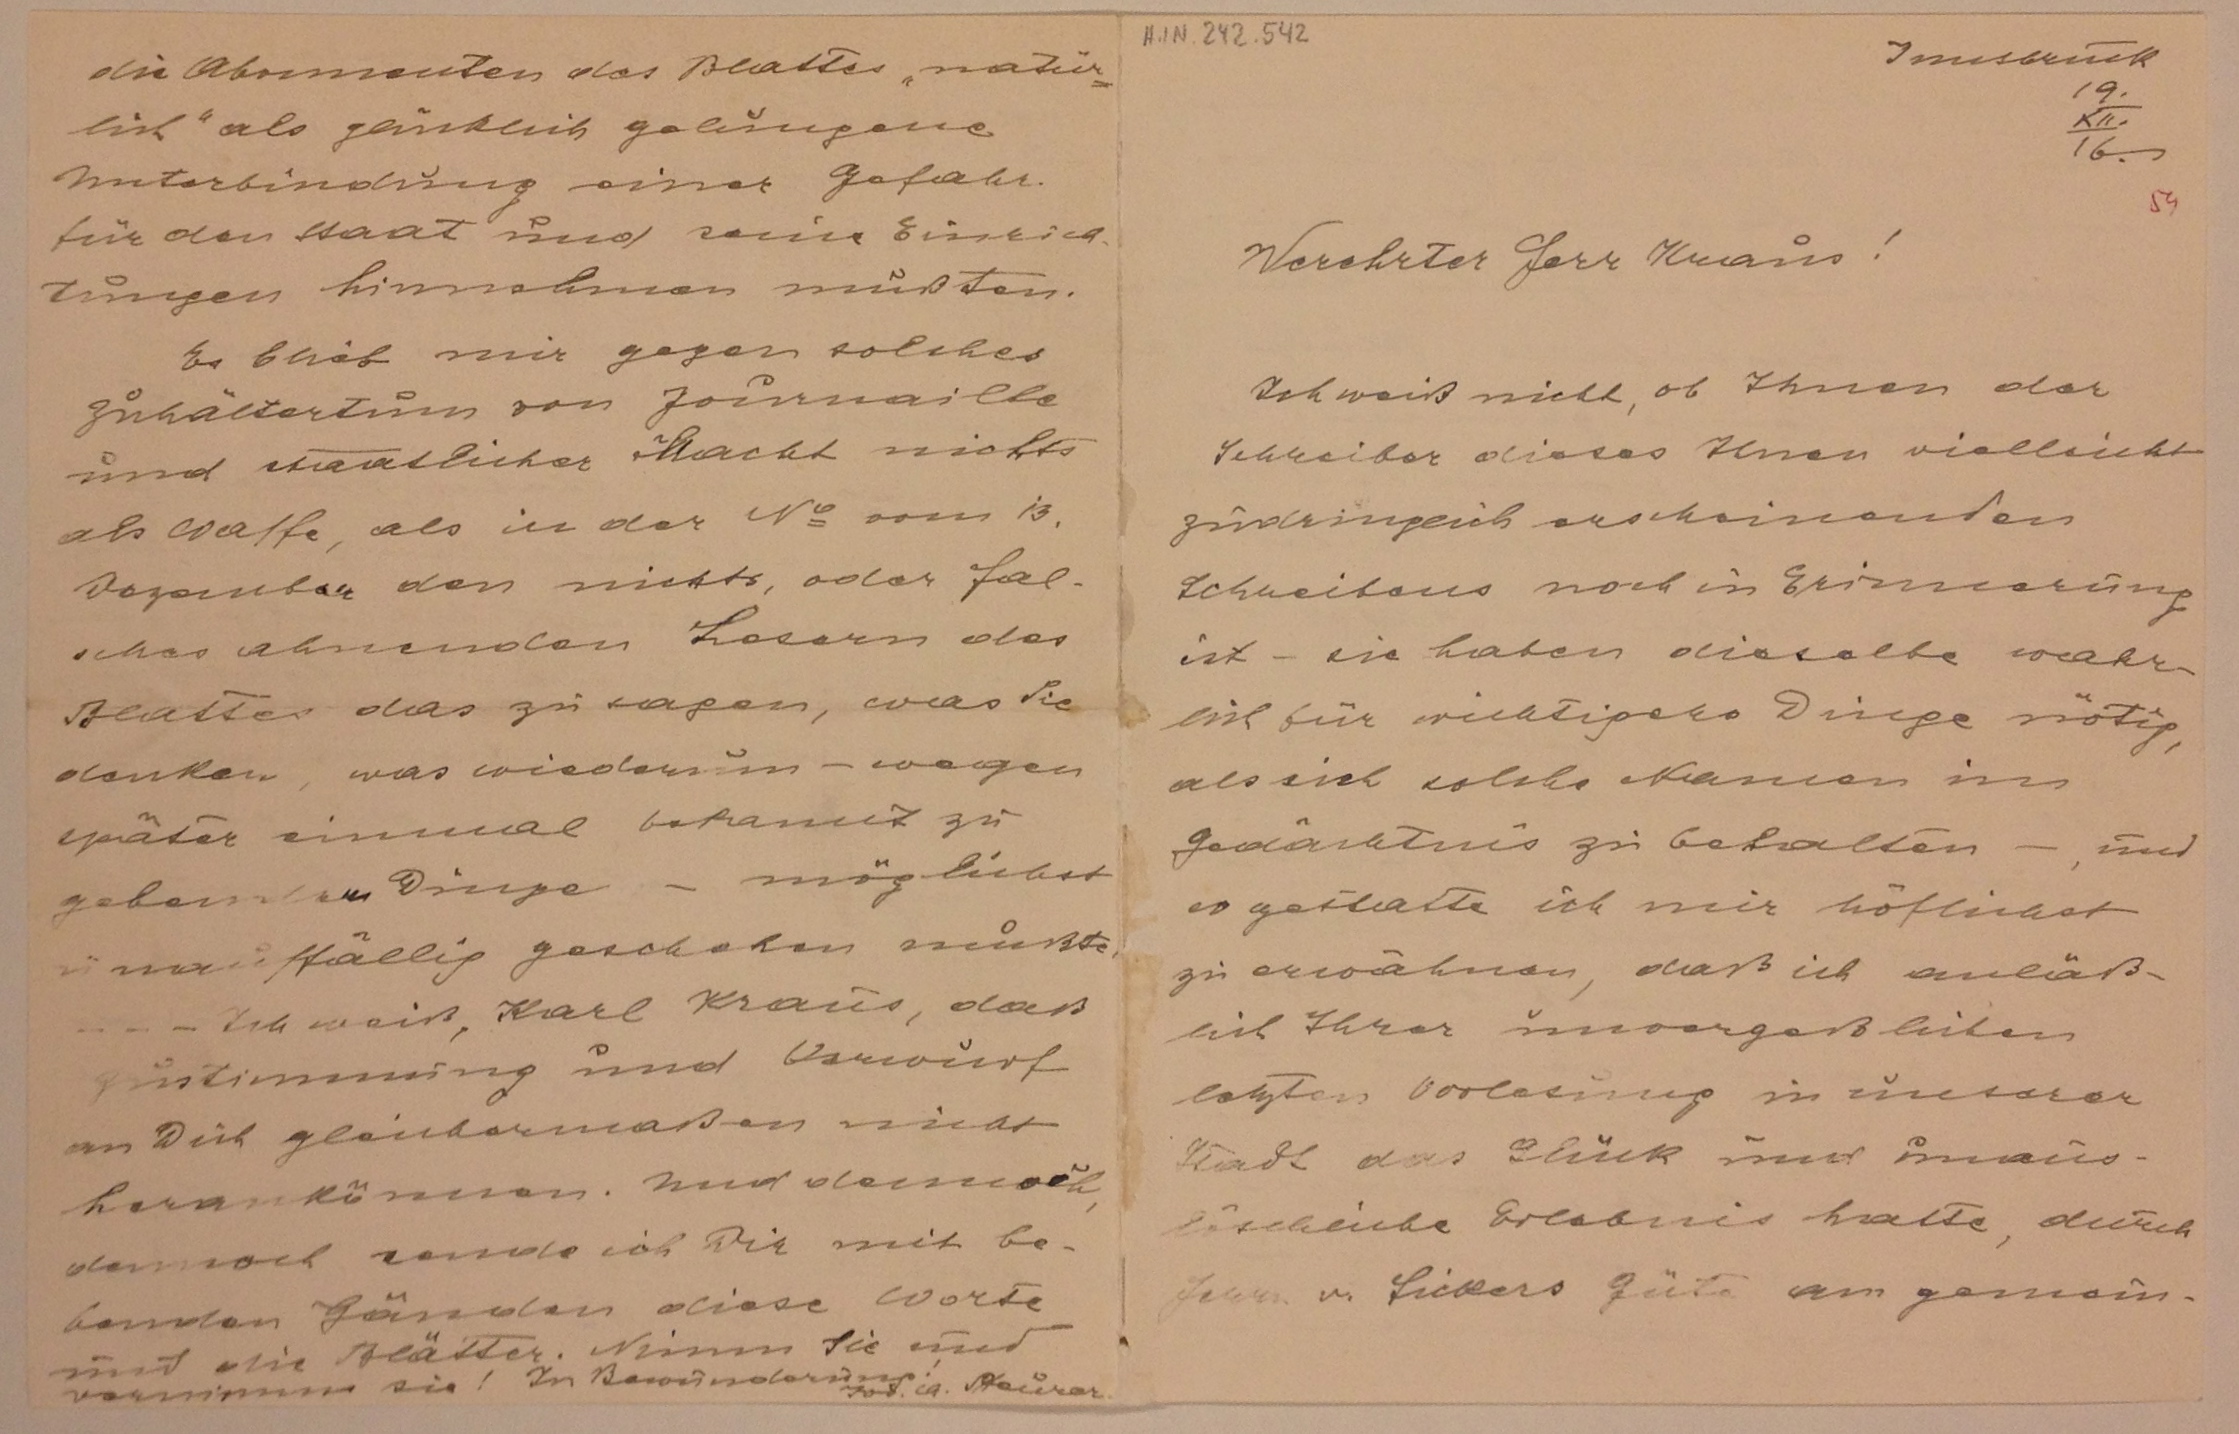 H.I.N. 242.542
Innsbruck
19.
XII.
16.
54
Verehrter Herr Kraus!
Ich weiß nicht, ob Ihnen der
Schreiber dieses Ihnen vielleicht
zudringlich erscheinenden
Schreibens noch in Erinnerung
ist – sie haben dieselbe wahr-
lich für wichtigere Dinge nötig,
als sich solche Namen im
Gedächtnis zu behalten –, und
so gestatte ich mir höflichst
zu erwähnen, daß ich anläß-
lich Ihrer unvergeßlichen
letzten Vorlesung in unserer
Stadt das Glück und unaus-
löschliche Erlebnis hatte, durch
Herrn v. Fickers Güte am gemein-
die Abonnenten des Blattes „natür-
lich" als glücklich gelungene
Unterbindung einer Gefahr.
für den Staat und seine Einrich-
tungen hinnehmen mußten.
Es blieb mir gegen solches
Zuhältertum von Journaille
und staatlicher Macht nichts
als Waffe, als in der No vom 13.
Dezember den nichts, oder fal-
sches ahnenden Lesern des
Blattes das zu sagen, was Sie
denken, was wiederum – wegen
später einmal bekannt zu
gebenden Dinge – möglichst
unauffällig geschehen mußte.
- - - Ich weiß, Karl Kraus, daß
Zustimmung und Vorwurf
an Dich gleichermaßen nicht
herankönnen. Und dennoch,
dennoch sende ich Dir mit be-
benden Händen diese Worte
und die Blätter. Nimm Sie und
vernimm sie! In Bewunderung!
Jos. A. Steurer.